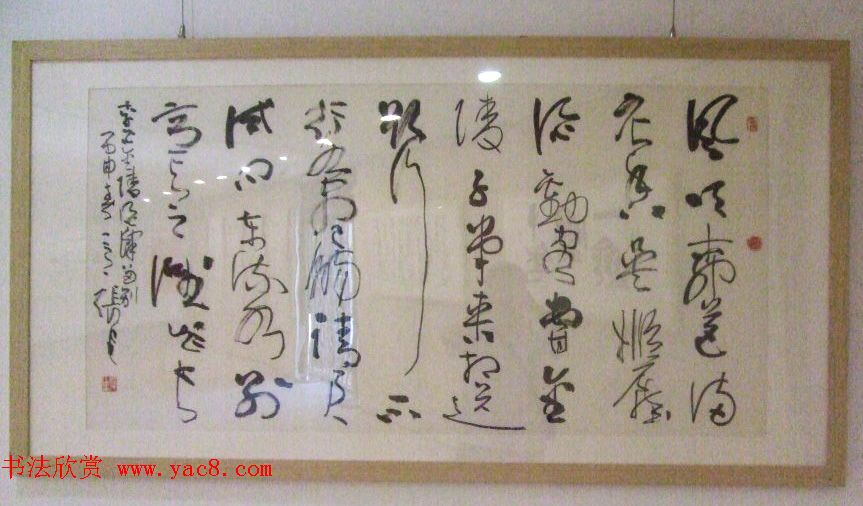 風吹柳花满
店香吳姬壓
酒勸客嘗金
陵子弟来相送
欲行不
行各尽觴請君
試问东流水别
意与之誰短长
李白金陵酒肆留别
丙申春
书法欣赏 www.yac8.com